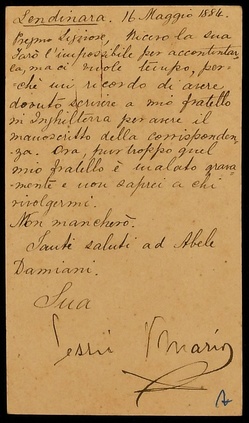 Lendinara, 16 Maggio 1884.
Pregmo Signore, Ricevo la sua
Farò l'impossibile per accontentar-
la, ma ci vuole tempo, per-
chè mi ricordo di avere
dovuto scrivere a mio fratello
in Inghilterra per avere il
manoscritto della corrisponden-
za. Ora, pur troppo quel
mio fratello è malato grave-
mente e non saprei a chi
rivolgermi.
Non mancherò.
Tanti saluti ad Abele
Damiani.
Sua
Jessie V Mario